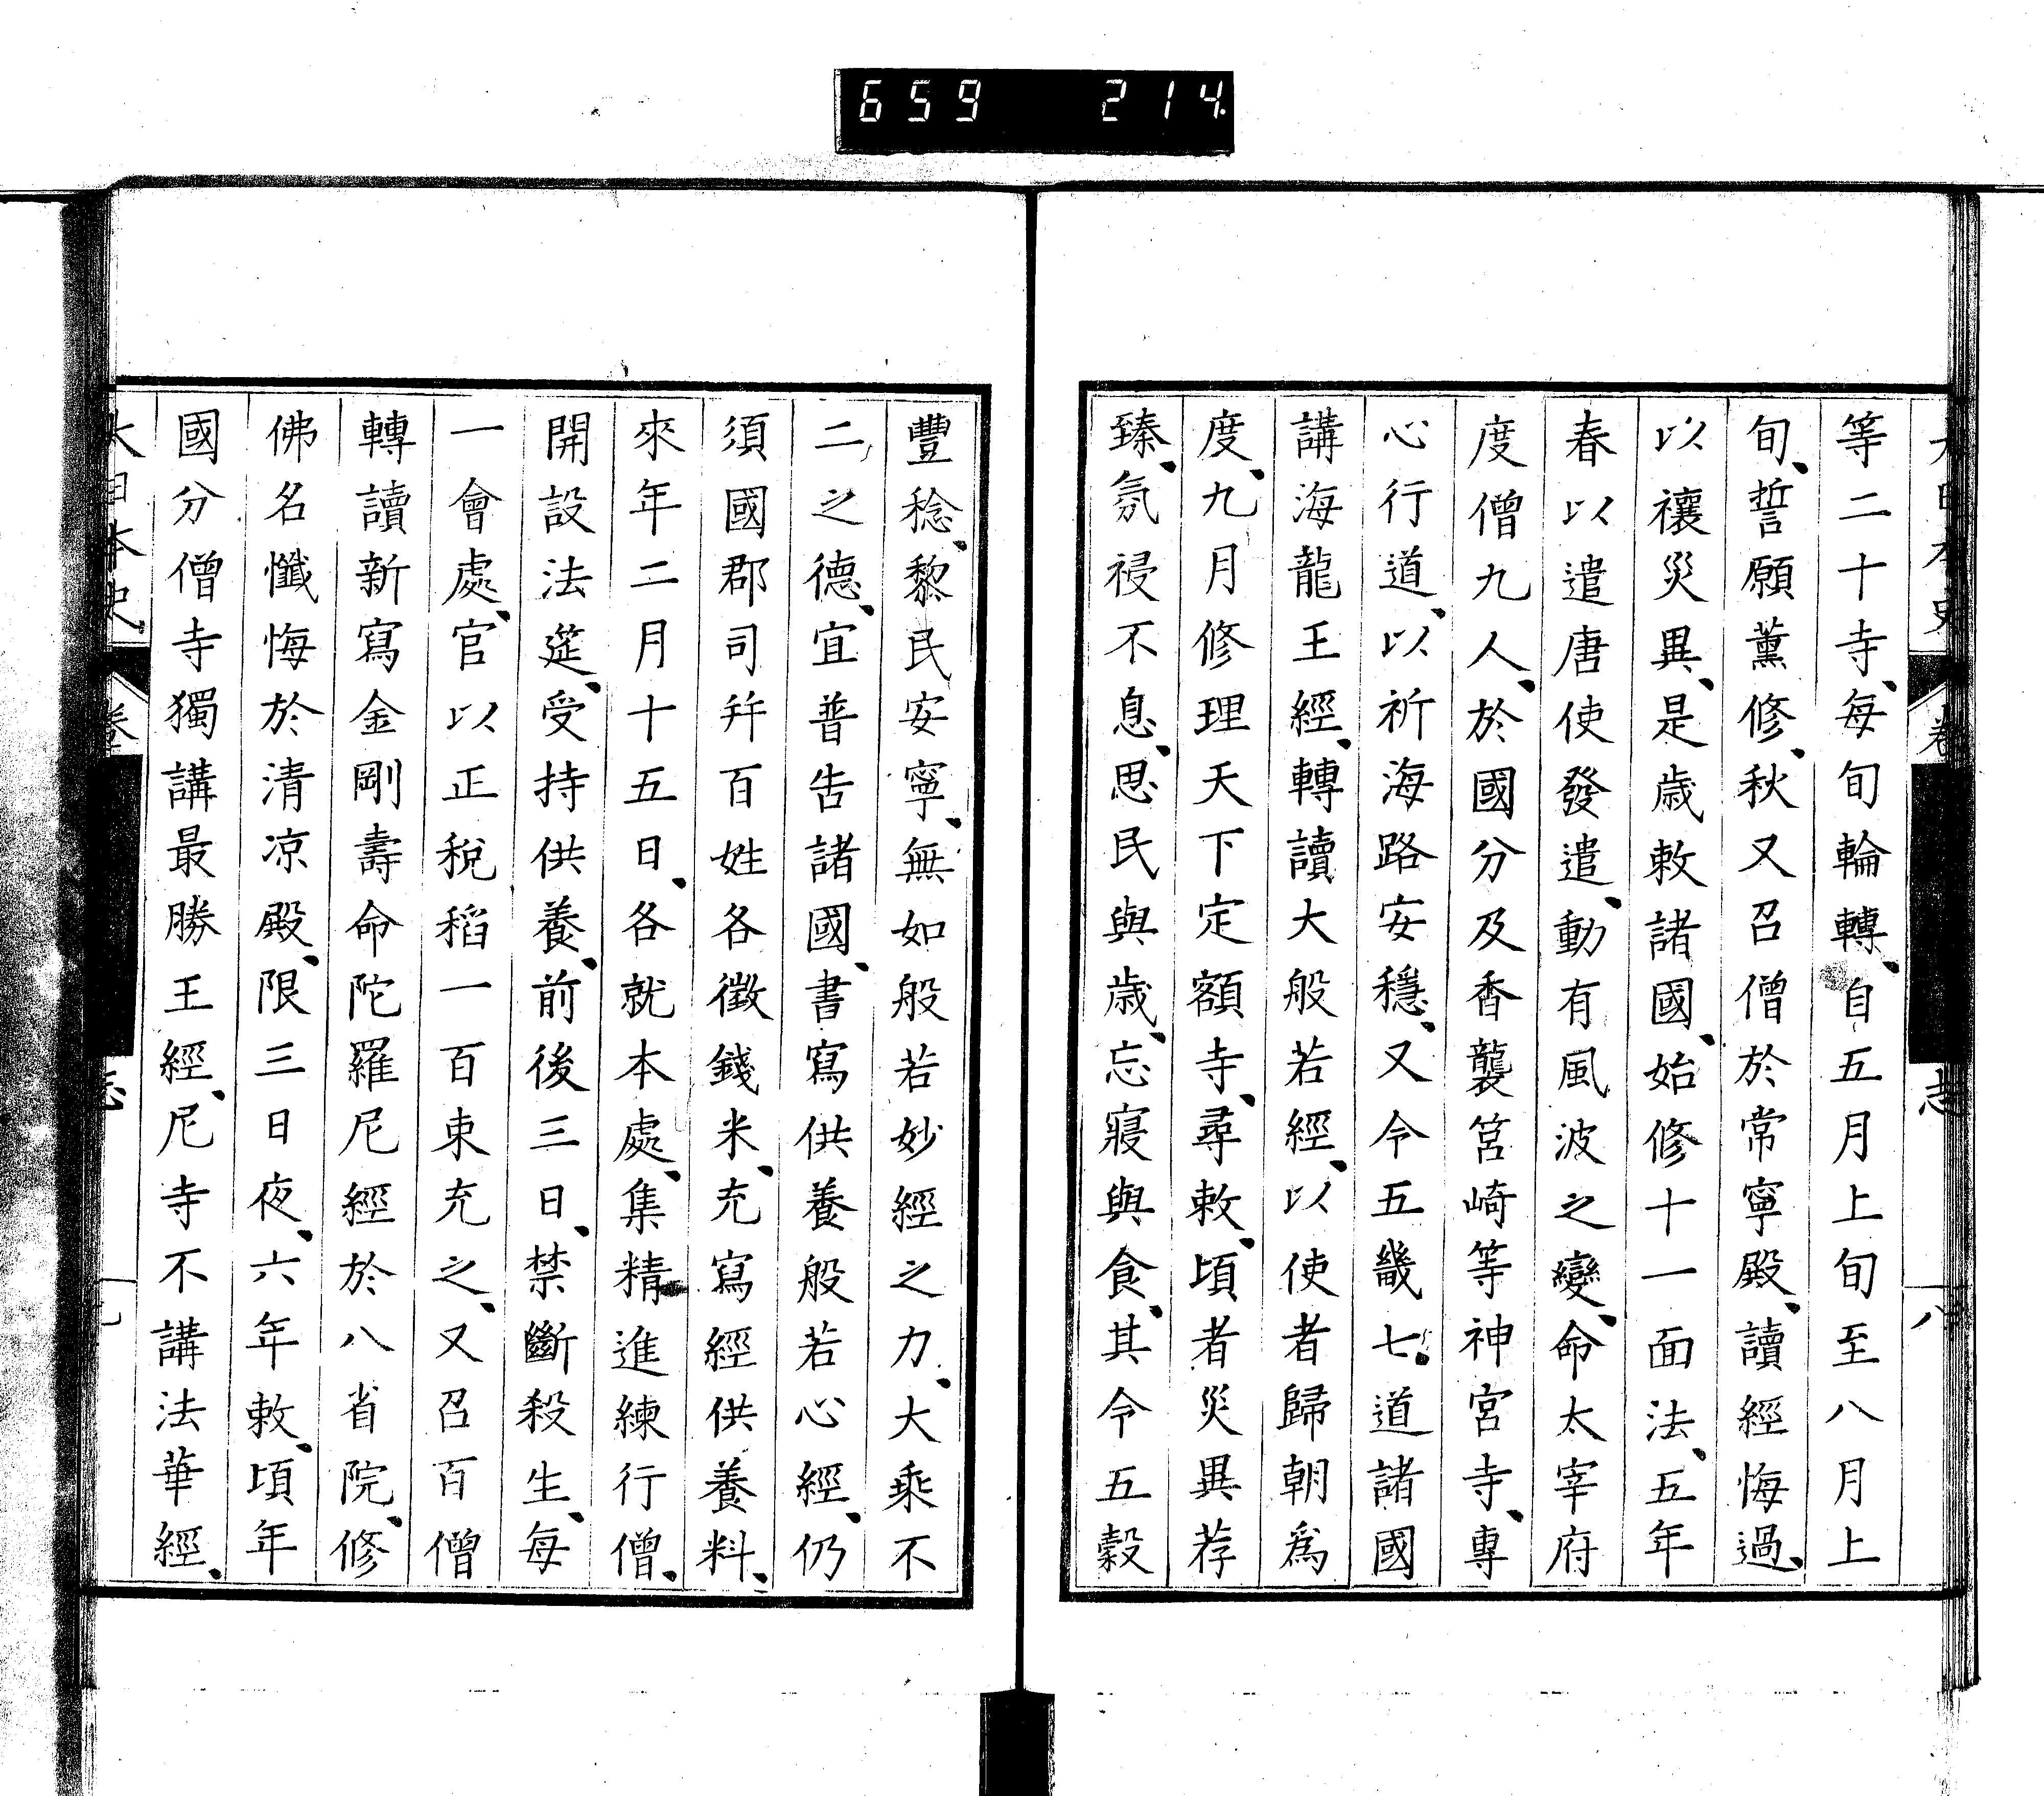 659 214
大日本史 卷 志 八
等二十寺、每旬輪轉、自五月上旬至八月上
旬、誓願薰修、秋又召僧於常寧殿、讀經悔過、
以禳災異、是歲敕諸國、始修十一面法、五年
春以遣唐使發遣、動有風波之變、命太宰府
度僧九人、於國分及香襲筥崎等神宮寺、專
心行道、以祈海路安穩、又令五畿七道諸國
講海龍王經、轉讀大般若經、以使者歸朝爲
度、九月修理天下定額寺、尋敕、頃者災異荐
臻、氛祲不息、思民與歲、忘寢與食、其令五穀
豐稔、黎民安寧、無如般若妙經之力、大乘不
二之德、宜普告諸國、書寫供養般若心經、仍
須國郡司幷百姓各徵錢米、充寫經供養料、
來年二月十五日、各就本處、集精進練行僧、
開設法筵、受持供養、前後三日、禁斷殺生、每
一會處、官以正稅稻一百束充之、又召百僧
轉讀新寫金剛壽命陀羅尼經於八省院、修
佛名懺悔於清凉殿、限三日夜、六年敕、頃年
國分僧寺獨講最勝王經、尼寺不講法華經、
大日本史 卷 志 九